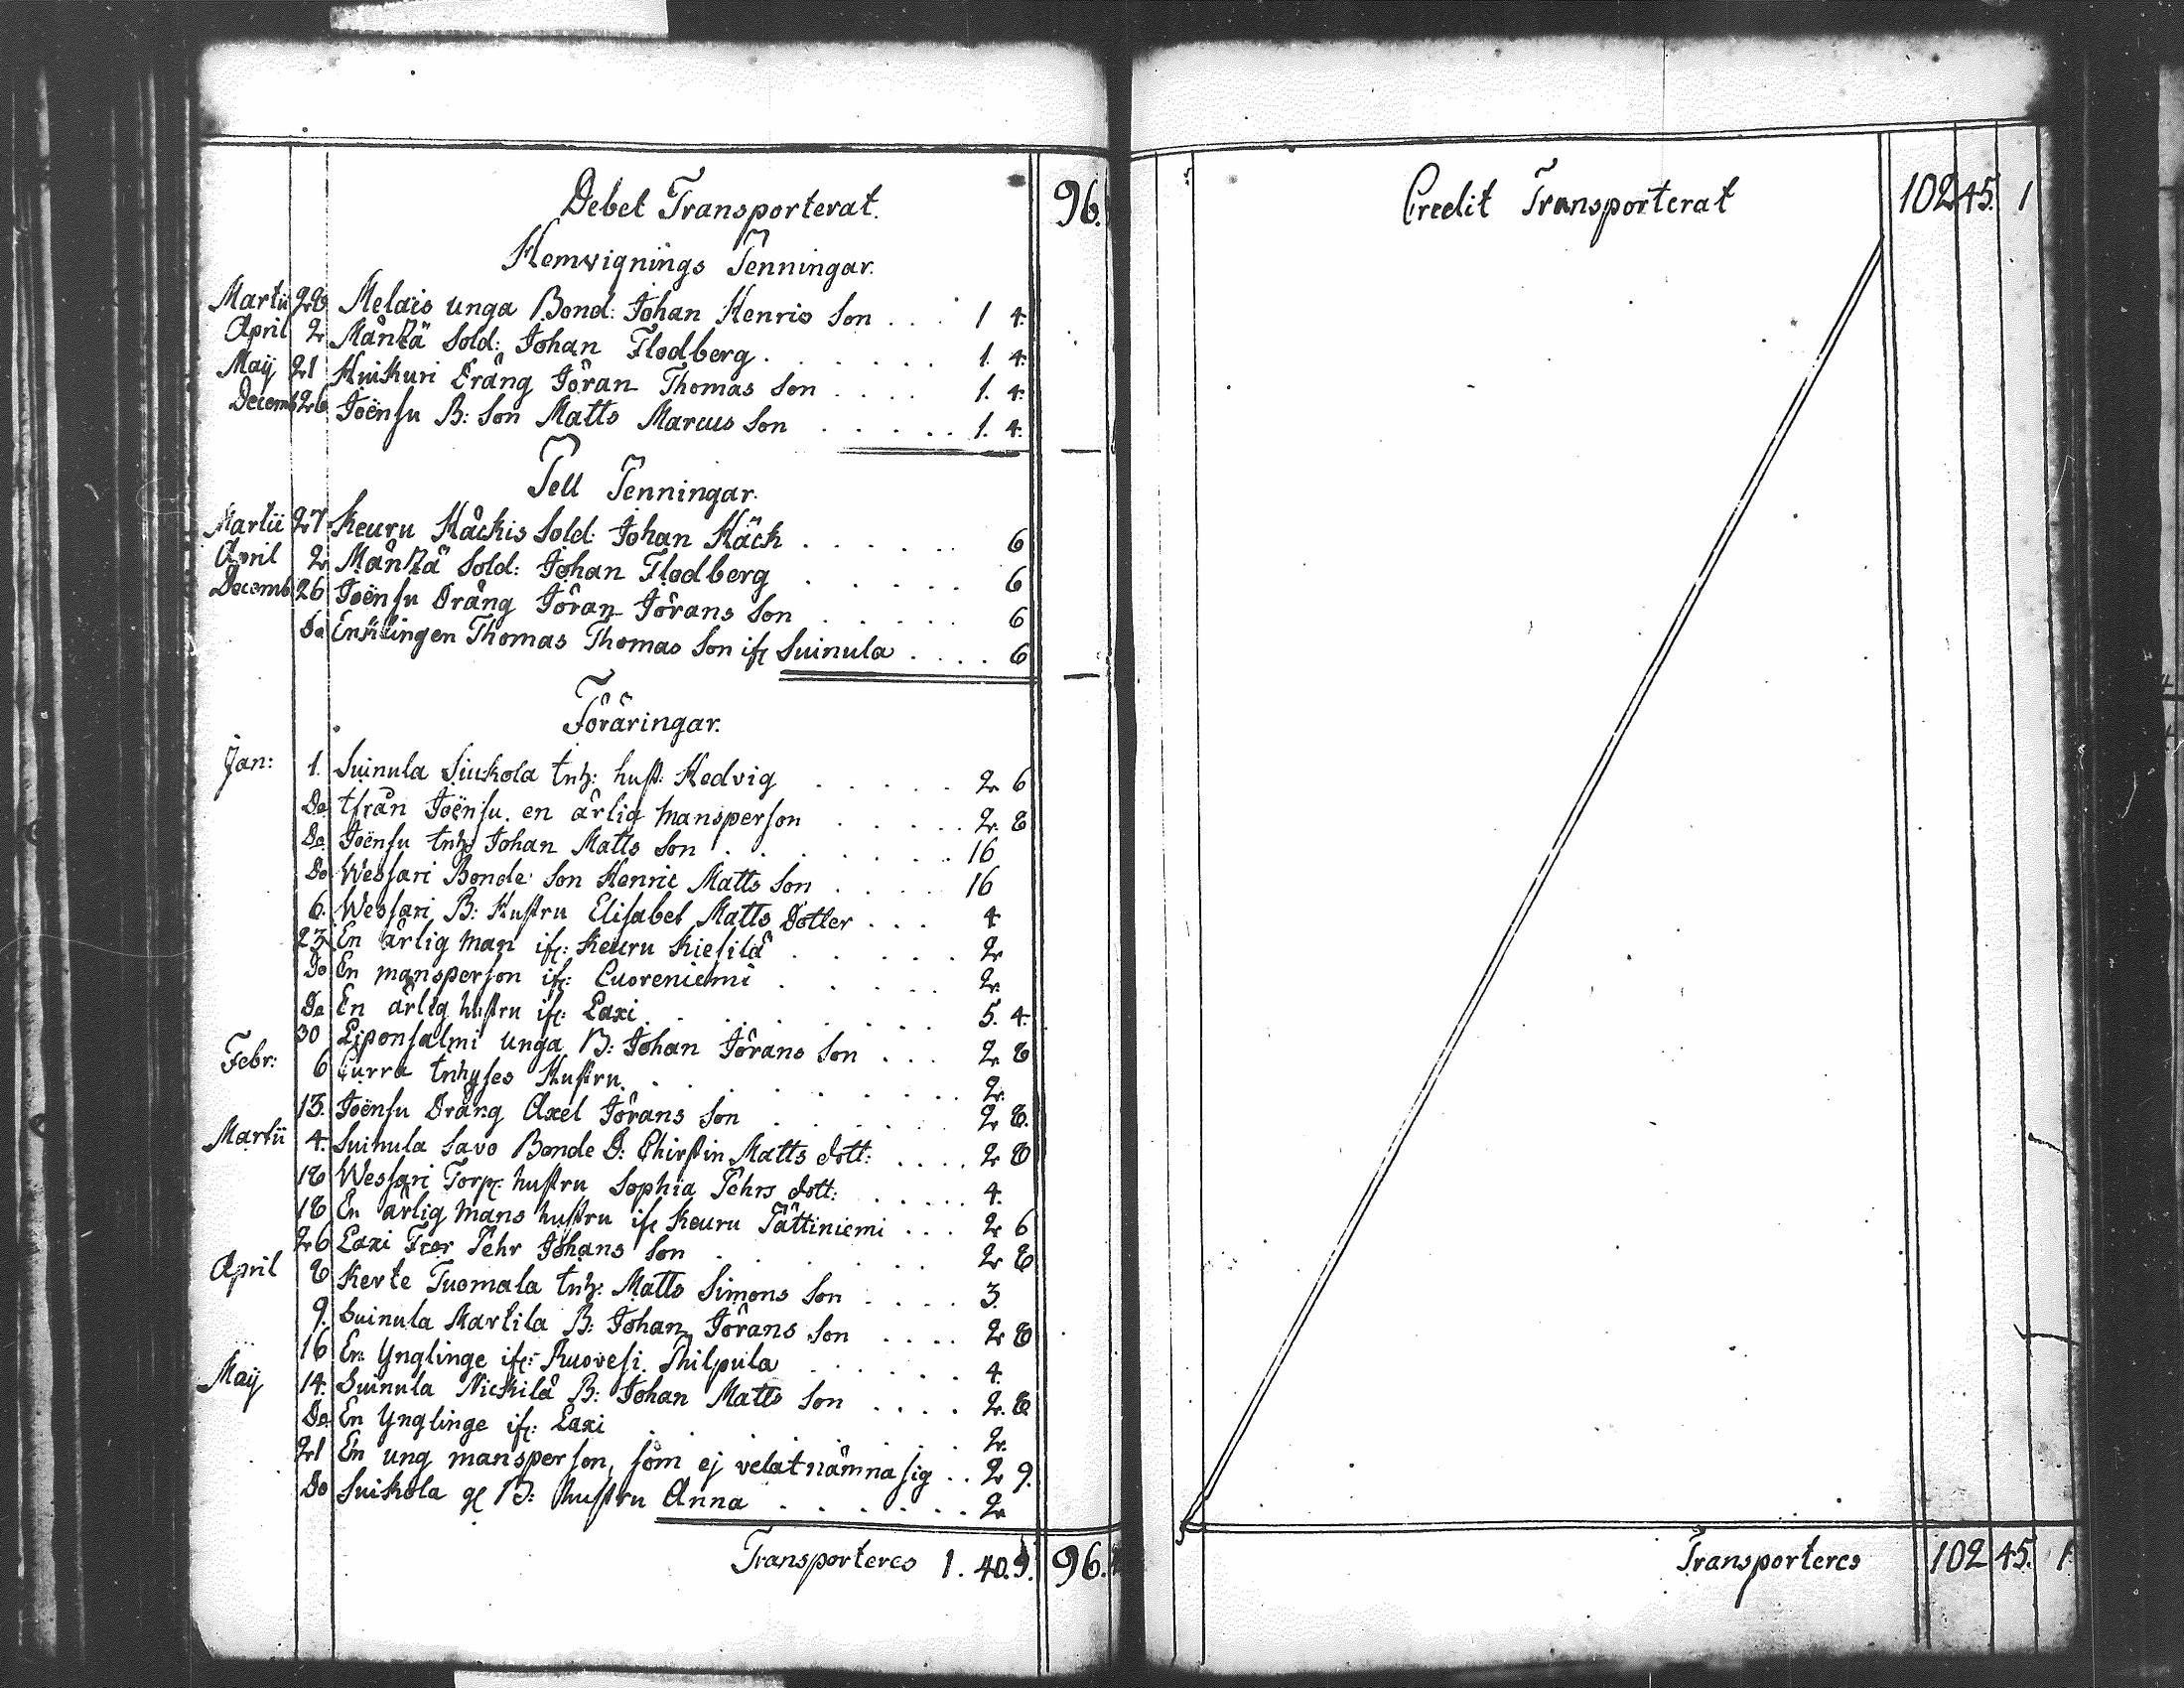 Debet Transporterat. 96.
Hemvignings Penningar.
Martii 28 Melais unga Bond: Johan Henrics Son . . . 1 4.
April 2 Mänttä Sold: Johan Flodberg . . . . . . 1. 4.
Maij 21 Huikuri Dräng Jöran Thomas Son . . . . 1. 4.
Decemb 26 Joënsu B: Son Matts Marcus Son . . . . . 1. 4.
Tell Penningar.
Martii 27 Keuru Häckis Sold: Johan Häck . . . . . . 6
April 2 Mänttä Sold: Johan Flodberg . . . . . 6
Decemb 26 Joënsu Dräng Jöran Jörans Son . . . . . 6
Do Enklingen Thomas Thomas Son ifr Suinula . . . . 6
Föräringar.
Jan: 1. Suinula Siukola Inh: hust: Hedvig . . . . . 2 6
Do ifrån Joënsu. en ärlig Mansperson . . . . . 2. 8
Do Joënsu Inh: Johan Matts Son . . . . . . . 16
Do Wessari Bonde Son Henric Matts Son . . . . 16
6. Wessari B: Hustru Elisabet Matts Dotter . . . 4
23 En ärlig Man ifr: Keuru Kiesilä . . . . . 2
Do En mansperson ifr: Luoreniemi . . . . . 2.
Do En ärlig hustru ifr: Laxi . . . . . . . . 5. 4.
30 Liponsalmi unga B: Johan Jörans Son . . . 2 8
Febr: 6 Surra Inhyses Hustru . . . . . . . . 2.
13. Joënsu Dräng Axel Jörans Son . . . . . . 2 8.
Martii 4. Suinula Savo Bonde D: Chirstin Matts dott: . . . . 2 8
18 Wessari Torp: hustru Sophia Pehrs dott: . . . . . 4.
18 En ärlig Mans hustru ifr Keuru Pättiniemi . . . 2 6
26 Laxi Pehr Johans Son . . . . . . . 2 8
April 8 Kerte Tuomala Inh: Matts Simons Son . . . . 3.
9. Suinula Martila B: Johan Jörans Son . . . . 2 8
16 En Ynglinge ifr: Ruovesi Philpula . . . . . . 4.
Maij 14. Suinula Nickilä B: Johan Matts Son . . . . 2. 8
Do En Ynglinge ifr: Laxi . . . . . . . . 2.
21 En ung mansperson, som ej velat nämna sig . . 2 9.
Do Suikola gl B: hustru Anna . . . . . . . 2
Transporteres 1. 40. 9. 96.
Credit Transporterat 102 45. 1
Transporteres 102 45. 1.